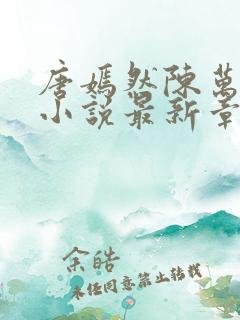 唐嫣然陈萬
小説最新章
余皓
未经同意禁止转载